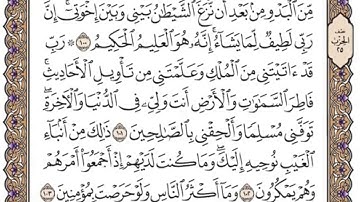 مِّنَ ٱلْبَدْوِ مِنۢ بَعْدِ أَن نَّزَغَ ٱلشَّيْطَٰنُ بَيْنِى وَبَيْنَ إِخْوَتِىٓ ۚ إِنَّ
رَبِّى لَطِيفٌ لِّمَا يَشَآءُ ۚ إِنَّهُۥ هُوَ ٱلْعَلِيمُ ٱلْحَكِيمُ ١٠٠ ۞ رَبِّ
قَدْ ءَاتَيْتَنِى مِنَ ٱلْمُلْكِ وَعَلَّمْتَنِى مِن تَأْوِيلِ ٱلْأَحَادِيثِ ۚ
فَاطِرَ ٱلسَّمَٰوَٰتِ وَٱلْأَرْضِ أَنتَ وَلِىِّۦ فِى ٱلدُّنْيَا وَٱلْأَخِرَةِ ۖ
تَوَفَّنِى مُسْلِمًا وَأَلْحِقْنِى بِٱلصَّٰلِحِينَ ١٠١ ذَٰلِكَ مِنْ أَنۢبَآءِ
ٱلْغَيْبِ نُوحِيهِ إِلَيْكَ ۖ وَمَا كُنتَ لَدَيْهِمْ إِذْ أَجْمَعُوٓا۟ أَمْرَهُمْ
وَهُمْ يَمْكُرُونَ ١٠٢ وَمَآ أَكْثَرُ ٱلنَّاسِ وَلَوْ حَرَصْتَ بِمُؤْمِنِينَ ١٠٣
نصف
الحزب
٢٥